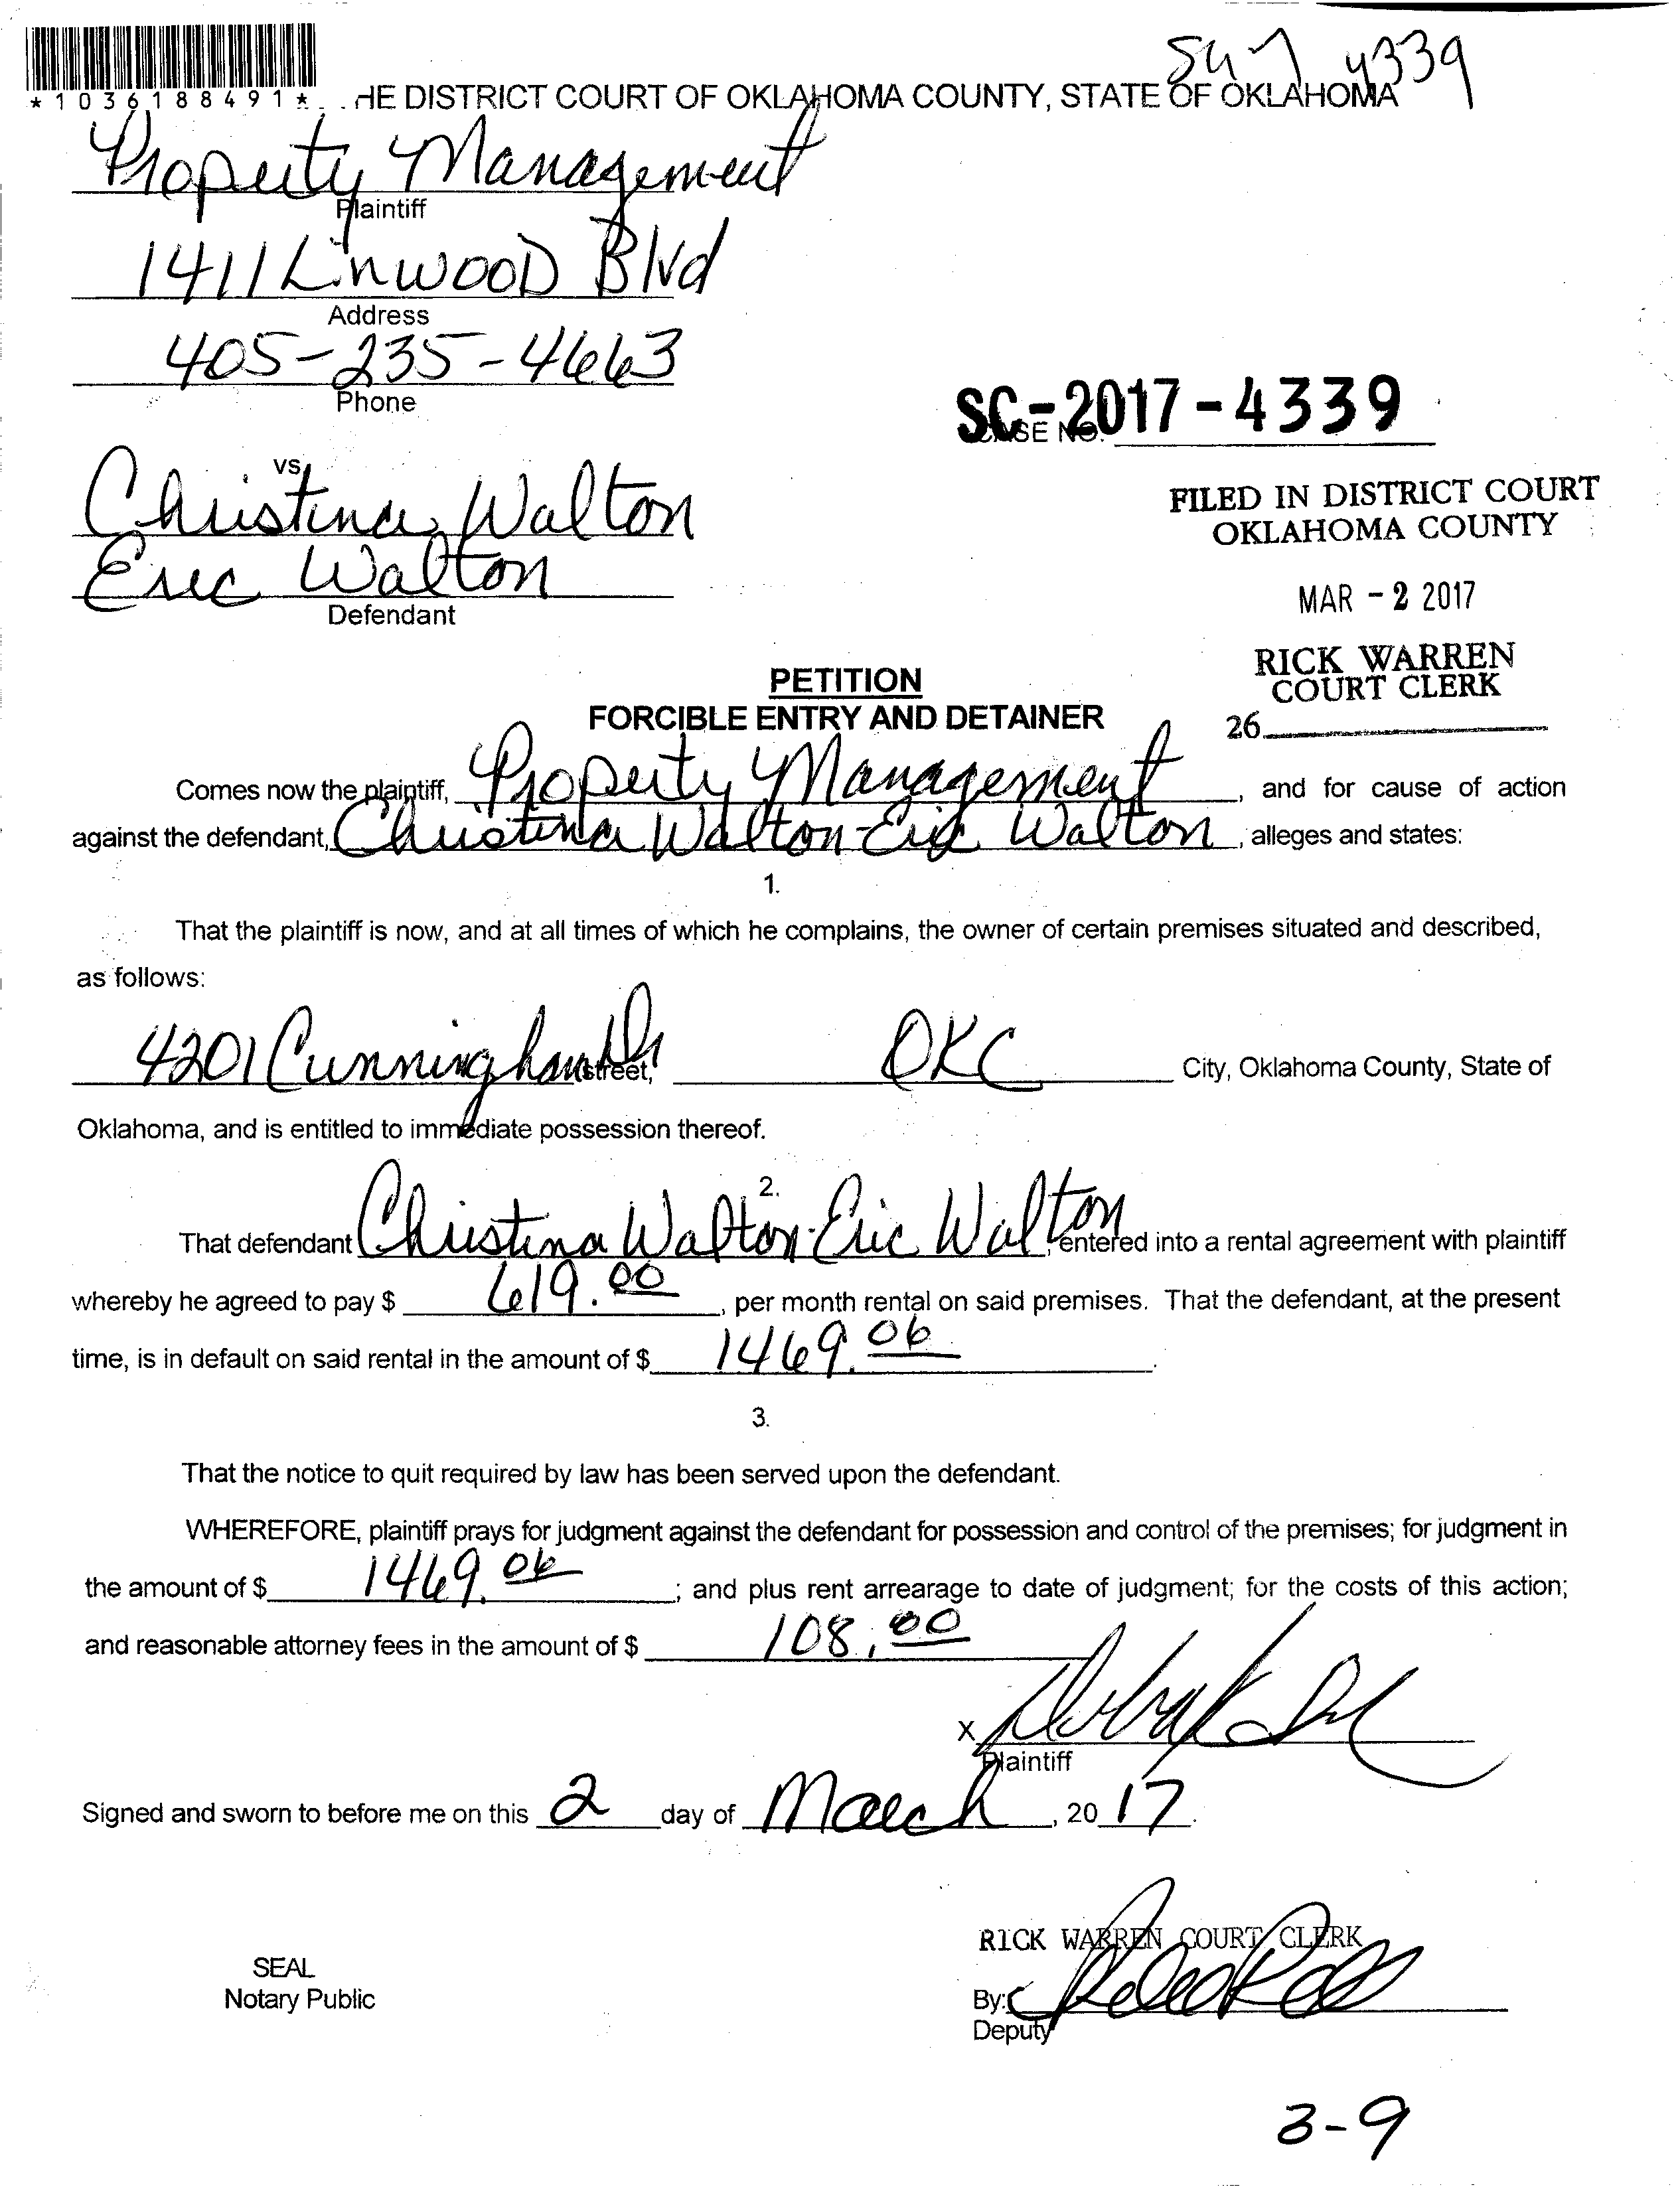 4339
*1036188491* HE DISTRICT COURT OF OKLAHOMA COUNTY, STATE OF OKLAHOMA
Property Management
Plaintiff
1411 Linwood Blvd
Address
405-235-4663
Phone
SC-2017-4339
CASE NO.
vs.
Christina Walton
Eric Walton
Defendant
FILED IN DISTRICT COURT
OKLAHOMA COUNTY
MAR - 2 2017
RICK WARREN
COURT CLERK
26
PETITION
FORCIBLE ENTRY AND DETAINER
Comes now the plaintiff, Property Management, and for cause of action
against the defendant, Christina Walton-Eric Walton, alleges and states:
1.
That the plaintiff is now, and at all times of which he complains, the owner of certain premises situated and described,
as follows:
4201 Cunningham Dr street, OKC City, Oklahoma County, State of
Oklahoma, and is entitled to immediate possession thereof.
2.
That defendant Christina Walton-Eric Walton, entered into a rental agreement with plaintiff
whereby he agreed to pay $ 619.00, per month rental on said premises. That the defendant, at the present
time, is in default on said rental in the amount of $ 1469.06.
3.
That the notice to quit required by law has been served upon the defendant.
WHEREFORE, plaintiff prays for judgment against the defendant for possession and control of the premises; for judgment in
the amount of $ 1469.06; and plus rent arrearage to date of judgment; for the costs of this action;
and reasonable attorney fees in the amount of $ 108.00
X
Plaintiff
Signed and sworn to before me on this 2 day of March, 2017.
RICK WARREN COURT CLERK
SEAL
Notary Public
By:
Deputy
3-9